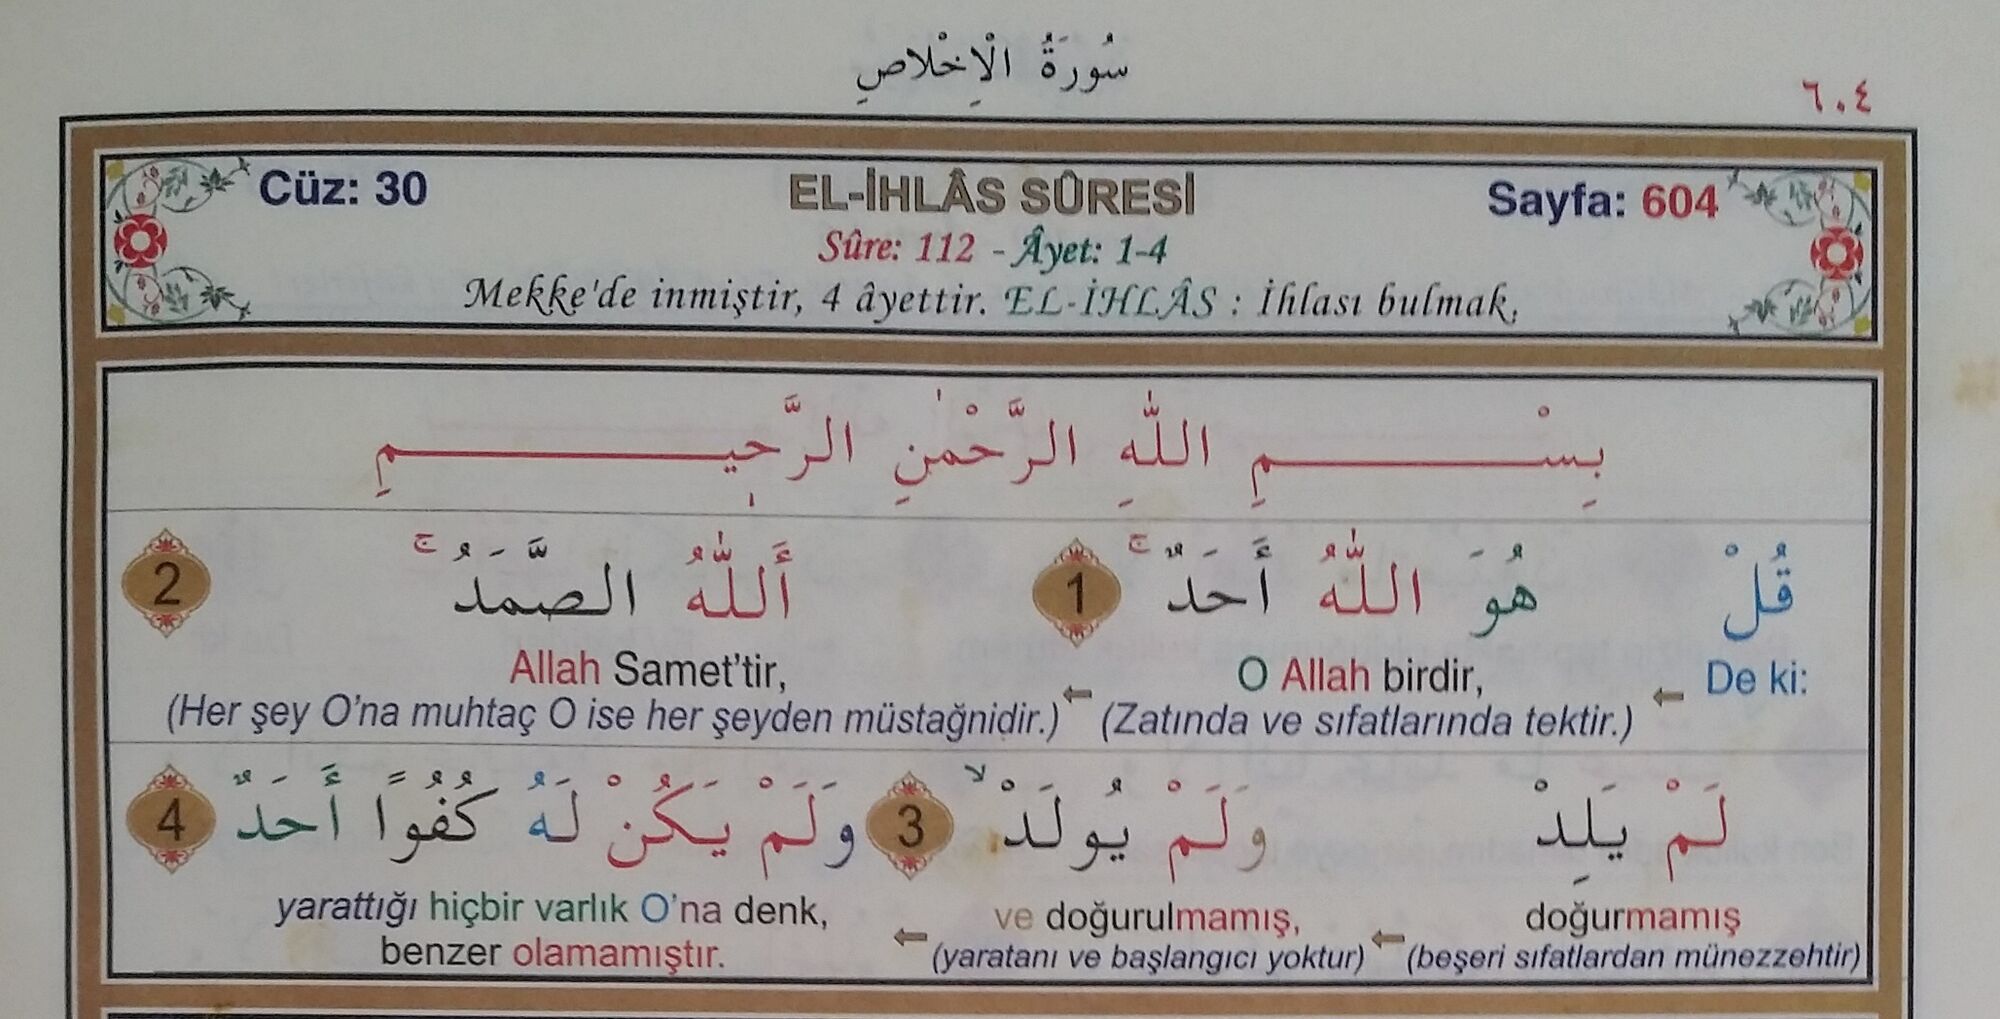 سُورَةُ الْاِخْلَاصِ
٦٠٤
Cüz: 30 EL-İHLÂS SÛRESİ Sayfa: 604
Sûre: 112 - Âyet: 1-4
Mekke'de inmiştir, 4 âyettir. EL-İHLÂS : İhlası bulmak,
بِسْمِ اللّٰهِ الرَّحْمٰنِ الرَّحٖيمِ
قُلْ هُوَ اللّٰهُ أَحَدٌ ۚ 1 أَللّٰهُ الصَّمَدُ ۚ 2
De ki: ← O Allah birdir, ← Allah Samet'tir,
(Zatında ve sıfatlarında tektir.) (Her şey O'na muhtaç O ise her şeyden müstağnidir.)
لَمْ يَلِدْ وَلَمْ يُولَدْ ۙ 3 وَلَمْ يَكُنْ لَهُ كُفُوًا أَحَدٌ 4
doğurmamış ← ve doğurulmamış, ← yarattığı hiçbir varlık O'na denk,
(beşeri sıfatlardan münezzehtir) (yaratanı ve başlangıcı yoktur) benzer olamamıştır.